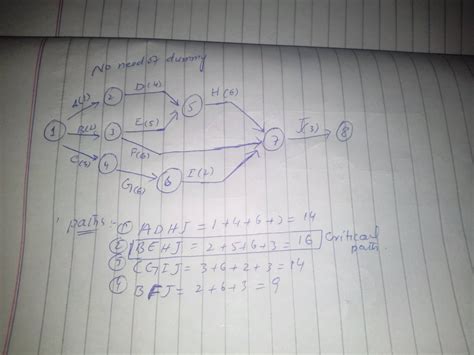 No need of dummy
A(1) D(4) H(6)
B(2) E(5)
C(3) F(6) J(3)
G(6) I(2)
1 2 3 4 5 6 7 8
paths:- ① ADHJ = 1+4+6+3 = 14
② BEHJ = 2+5+6+3 = 16 Critical path.
③ CGIJ = 3+6+2+3 = 14
④ BFJ = 2+6+3 = 9